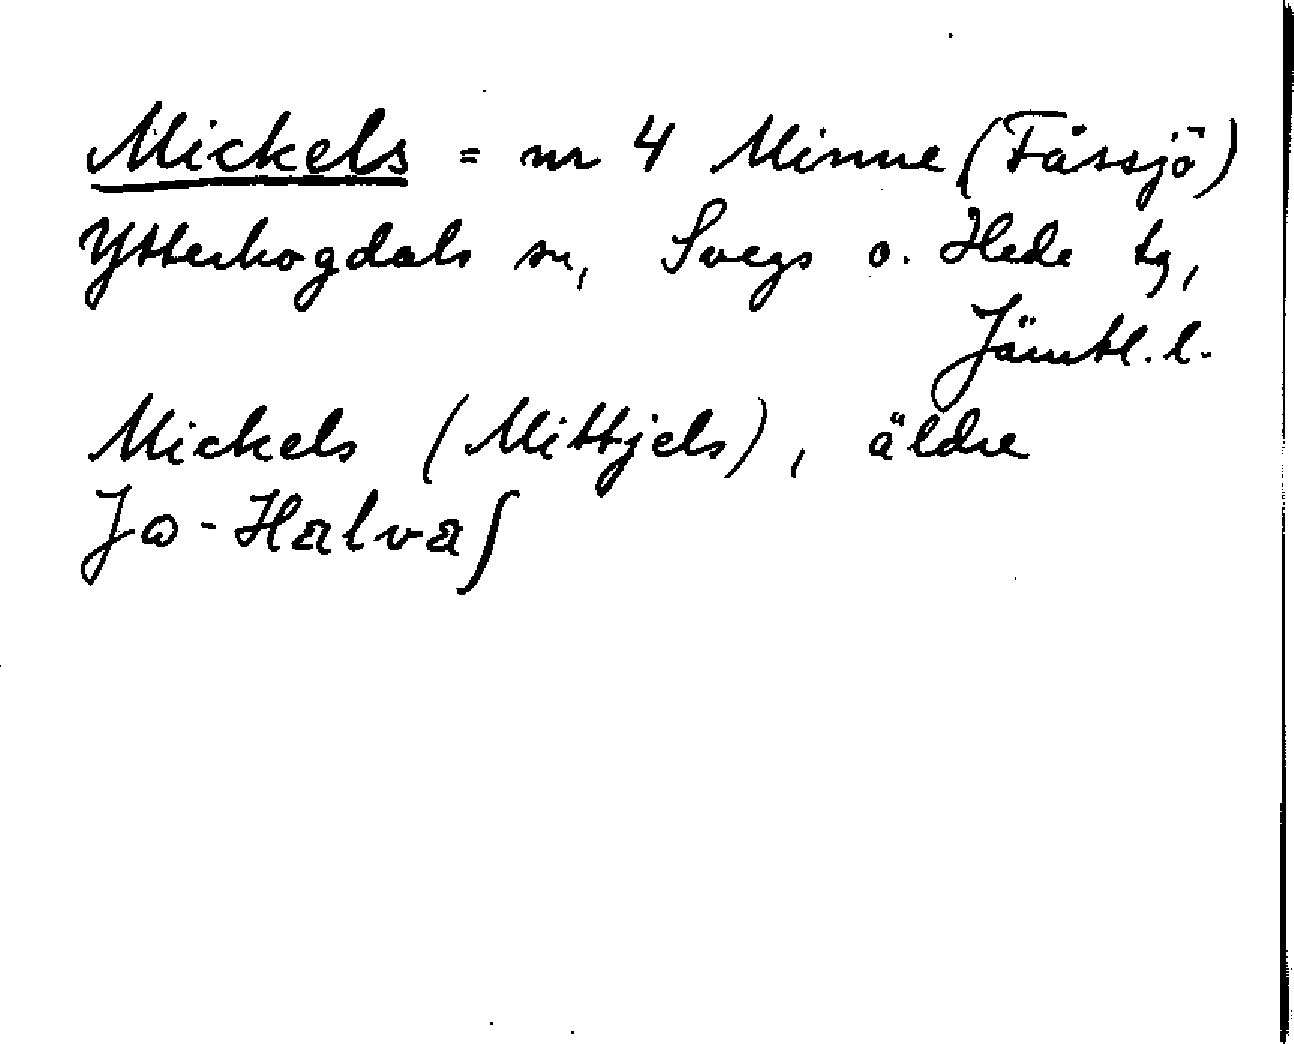 Mickels = nr 4 Minne (Fåssjö)
Ytterhogdals sn, Svegs o. Hede tg,
Jämtl. l.
Mickels (Mittjels), äldre
Jɷ-Halvaʃ